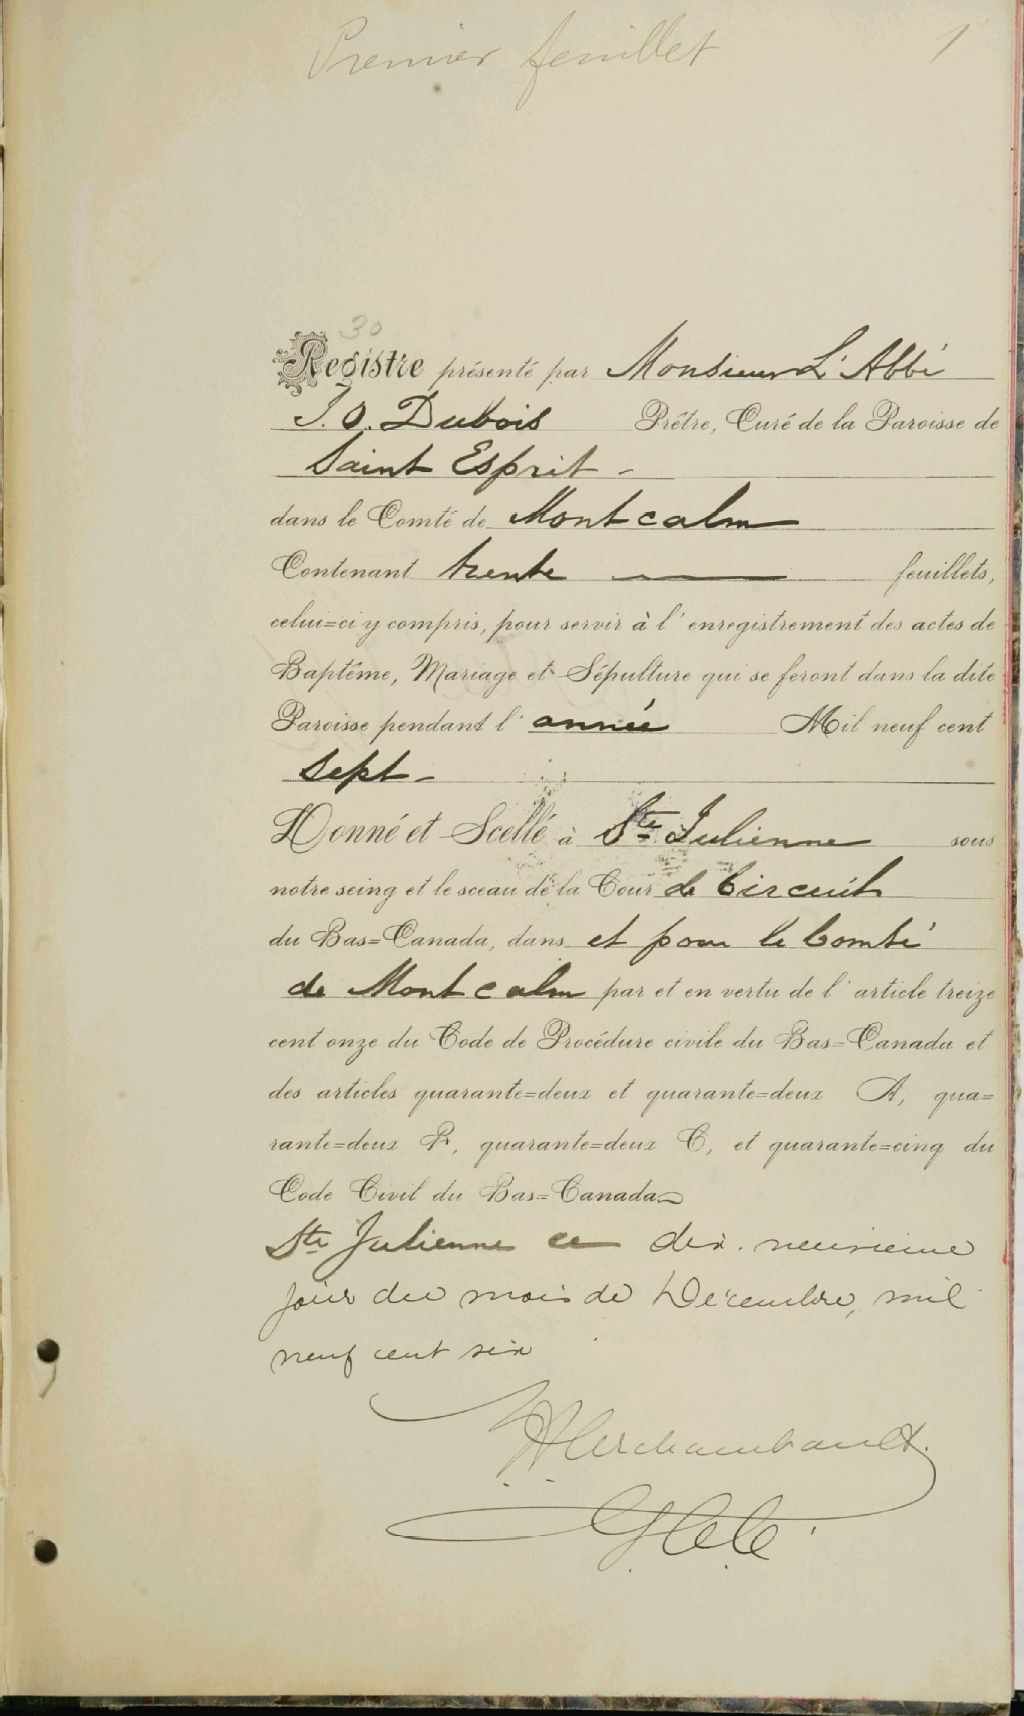 Premier feuillet 1
30
Registre présenté par Monsieur L'Abbé
J. O. Dubois Prêtre, Curé de la Paroisse de
Saint Esprit -
dans le Comté de Montcalm
Contenant trente feuillets,
celui=ci y compris, pour servir à l'enregistrement des actes de
Baptême, Mariage et Sépulture qui se feront dans la dite
Paroisse pendant l'année Mil neuf cent
Sept -
Donné et Scellé à Ste Julienne sous
notre seing et le sceau de la Cour de Circuit
du Bas=Canada, dans et pour le Comté
de Montcalm par et en vertu de l'article treize
cent onze du Code de Procédure civile du Bas=Canada et
des articles quarante=deux et quarante=deux A, qua=
rante=deux B, quarante=deux C, et quarante=cinq du
Code Civil du Bas=Canada
Ste Julienne ce dix-neuvieme
jour du mois de Décembre, mil
neuf cent six
Archambault